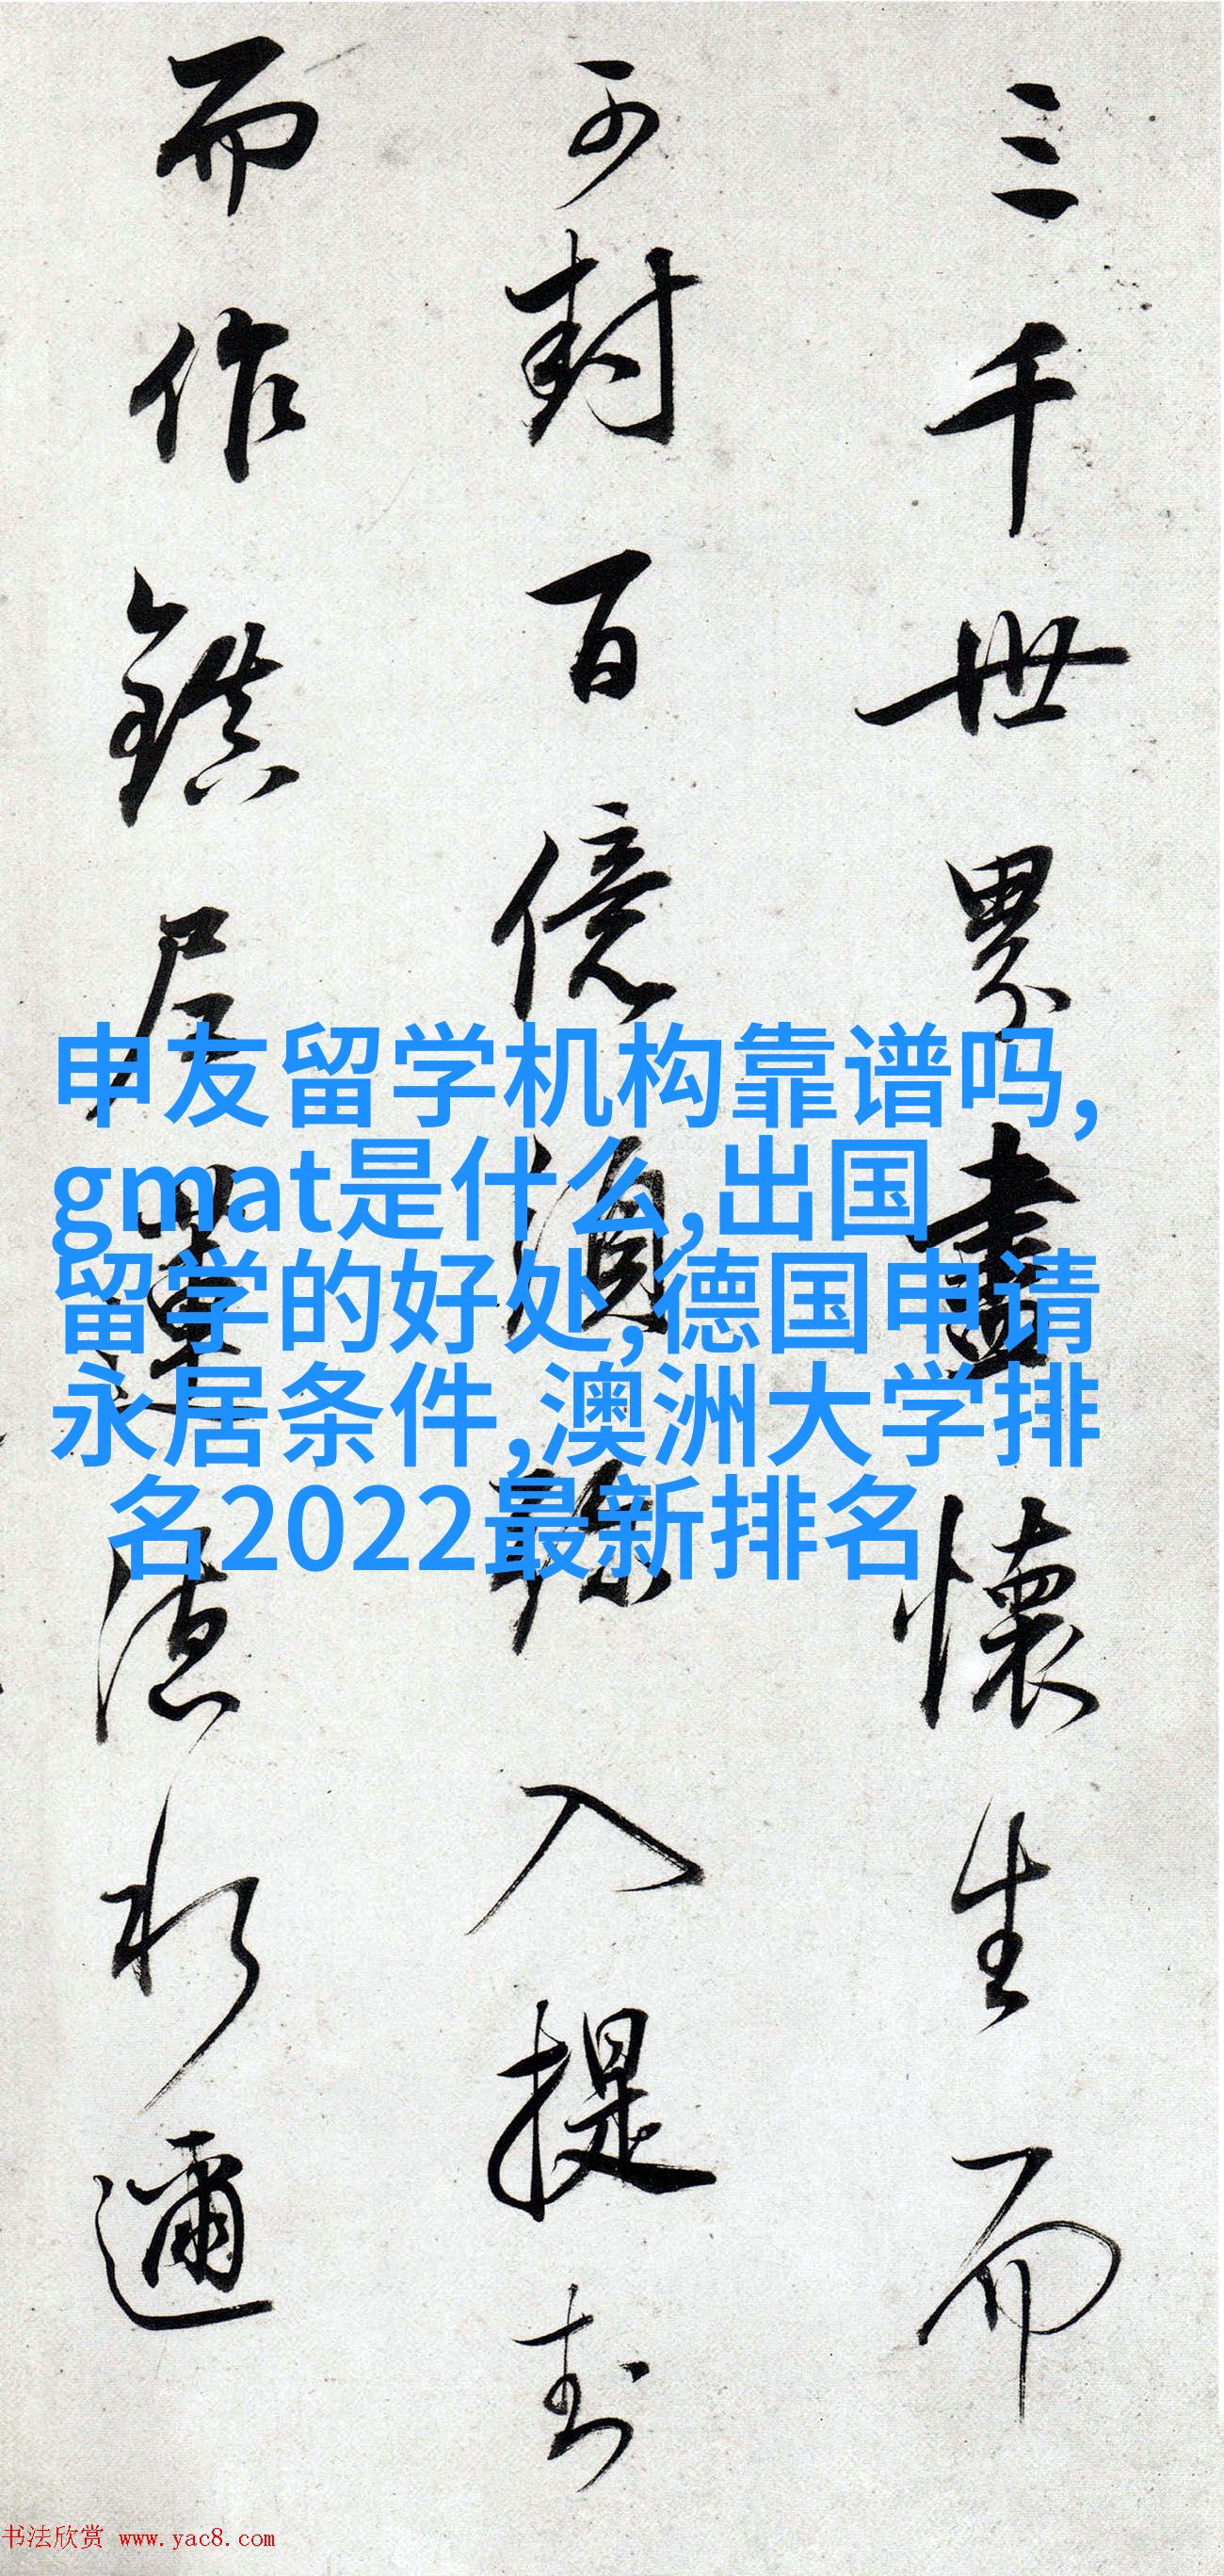 三千世界盡懷生而
可封百億須弥入提封
而作鎮尼罩
德水
邇
申友留学机构靠谱吗,
gmat是什么,出国
留学的好处,德国申请
永居条件,澳洲大学排
名2022最新排名
书法欣赏 www.yac8.com